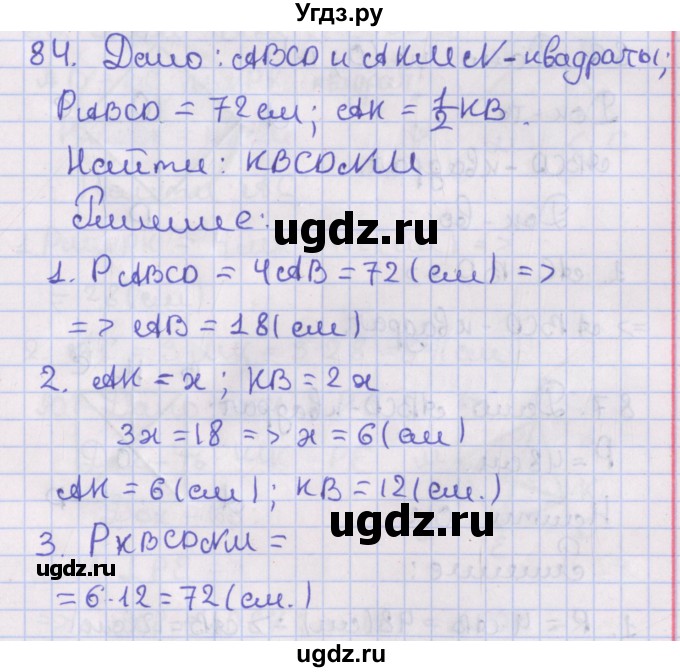 Угдз.ру
84. Дано: ABCD и AKMN - квадраты;
PABCD = 72 см; AK = 1/2 KB.
Найти: KBCDNM
Решение:
ugdz.ru
1. PABCD = 4AB = 72 (см) =>
=> AB = 18 (см)
2. AK = x; KB = 2x
3x = 18 => x = 6 (см)
AK = 6 (см); KB = 12 (см.)
ugdz.ru
3. PKBCDNM =
ugdz.ru
= 6·12 = 72 (см.)
ugdz.ru